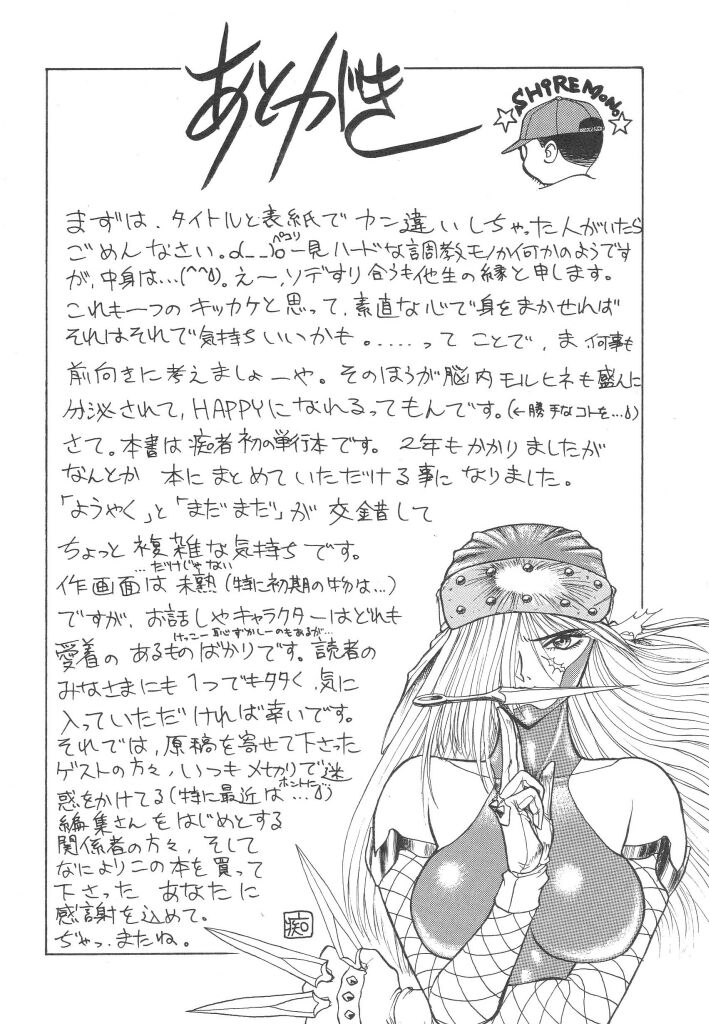 あとがき
SHiREMONO
まずは、タイトルと表紙でカン違いしちゃった人がいたら
ごめんなさい。o(__)o ペコリ 一見ハードな調教モノか何かのようです
が、中身は…(^^;)。え〜、ソデすり合うも他生の縁と申します。
これも一つのキッカケと思って、素直な心で身をまかせれば
それはそれで気持ちいいかも。……って ことで、ま 何事も
前向きに考えましょーや。そのほうが脳内モルヒネも盛んに
分泌されて、HAPPYになれるってもんです。(←勝手なコトを…;)
さて。本書は痴者初の単行本です。2年もかかりましたが
なんとか 本にまとめていただける事になりました。
「ようやく」と「まだまだ」が 交錯して
ちょっと 複雑な気持ちです。
…だけじゃない
作画面は 未熟(特に初期の物は…)
ですが、お話しやキャラクターはどれも
けっこー恥ずかしーのもあるが…
愛着の あるものばかりです。読者の
みなさまにも 1つでも多く、気に
入っていただければ幸いです。
それでは、原稿を寄せて下さった
ゲストの方々、いつも〆切りで迷
ホントに…
惑をかけてる(特に最近は…;)
編集さんをはじめとする
関係者の方々、そして
なによりこの本を買って
下さった あなたに
感謝を込めて。
ぢゃっ、またね。
痴